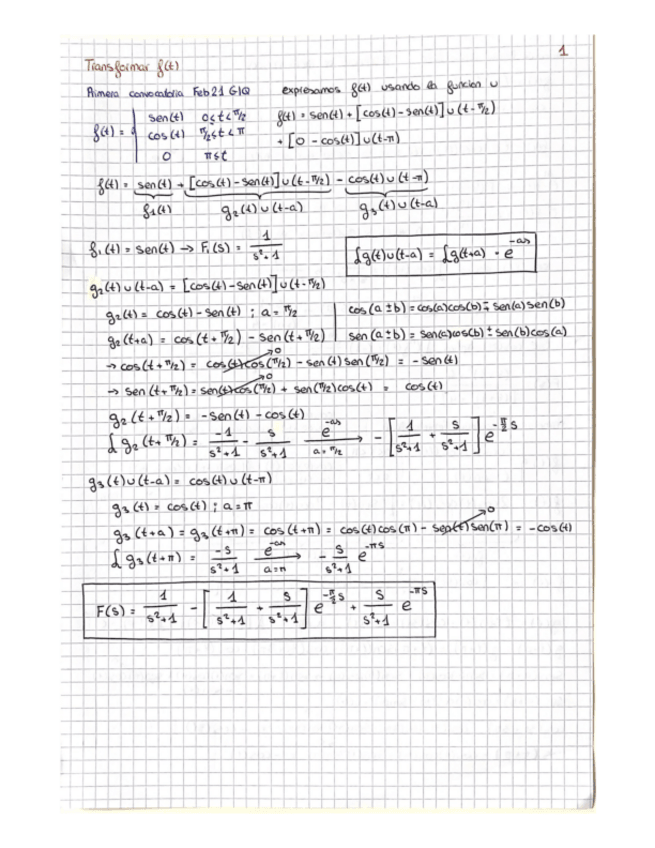 1
Transformar f(t)
Primera convocatoria Feb 21 GIQ expresamos f(t) usando la funcion u
f(t) = { sen(t) 0≤t<π/2
cos(t) π/2≤t<π
0 π≤t
f(t) = sen(t) + [cos(t) - sen(t)] u(t - π/2)
+ [0 - cos(t)] u(t-π)
f(t) = sen(t) + [cos(t) - sen(t)] u(t - π/2) - cos(t) u(t - π)
f₁(t) g₂(t) u(t-a) g₃(t) u(t-a)
f₁(t) = sen(t) → F₁(s) = 1/(s²+1)
ℒg(t)u(t-a) = ℒg(t+a) · e^(-as)
g₂(t) u(t-a) = [cos(t) - sen(t)] u(t - π/2)
g₂(t) = cos(t) - sen(t) ; a = π/2
g₂(t+a) = cos(t + π/2) - sen(t + π/2)
cos(a ± b) = cos(a)cos(b) ∓ sen(a)sen(b)
sen(a ± b) = sen(a)cos(b) ± sen(b)cos(a)
→ cos(t + π/2) = cos(t)cos(π/2)→0 - sen(t) sen(π/2) = - sen(t)
→ sen(t + π/2) = sen(t)cos(π/2)→0 + sen(π/2)cos(t) = cos(t)
g₂(t + π/2) = - sen(t) - cos(t)
ℒ g₂(t + π/2) = -1/(s²+1) - s/(s²+1) e^(-as) → a = π/2 - [1/(s²+1) + s/(s²+1)] e^(-π/2 s)
g₃(t) u(t-a) = cos(t) u(t-π)
g₃(t) = cos(t) ; a = π
g₃(t+a) = g₃(t+π) = cos(t+π) = cos(t)cos(π) - sen(t)sen(π)→0 = -cos(t)
ℒ g₃(t+π) = -s/(s²+1) e^(-as) → a=π - s/(s²+1) e^(-πs)
F(s) = 1/(s²+1) - [1/(s²+1) + s/(s²+1)] e^(-π/2 s) + s/(s²+1) e^(-πs)